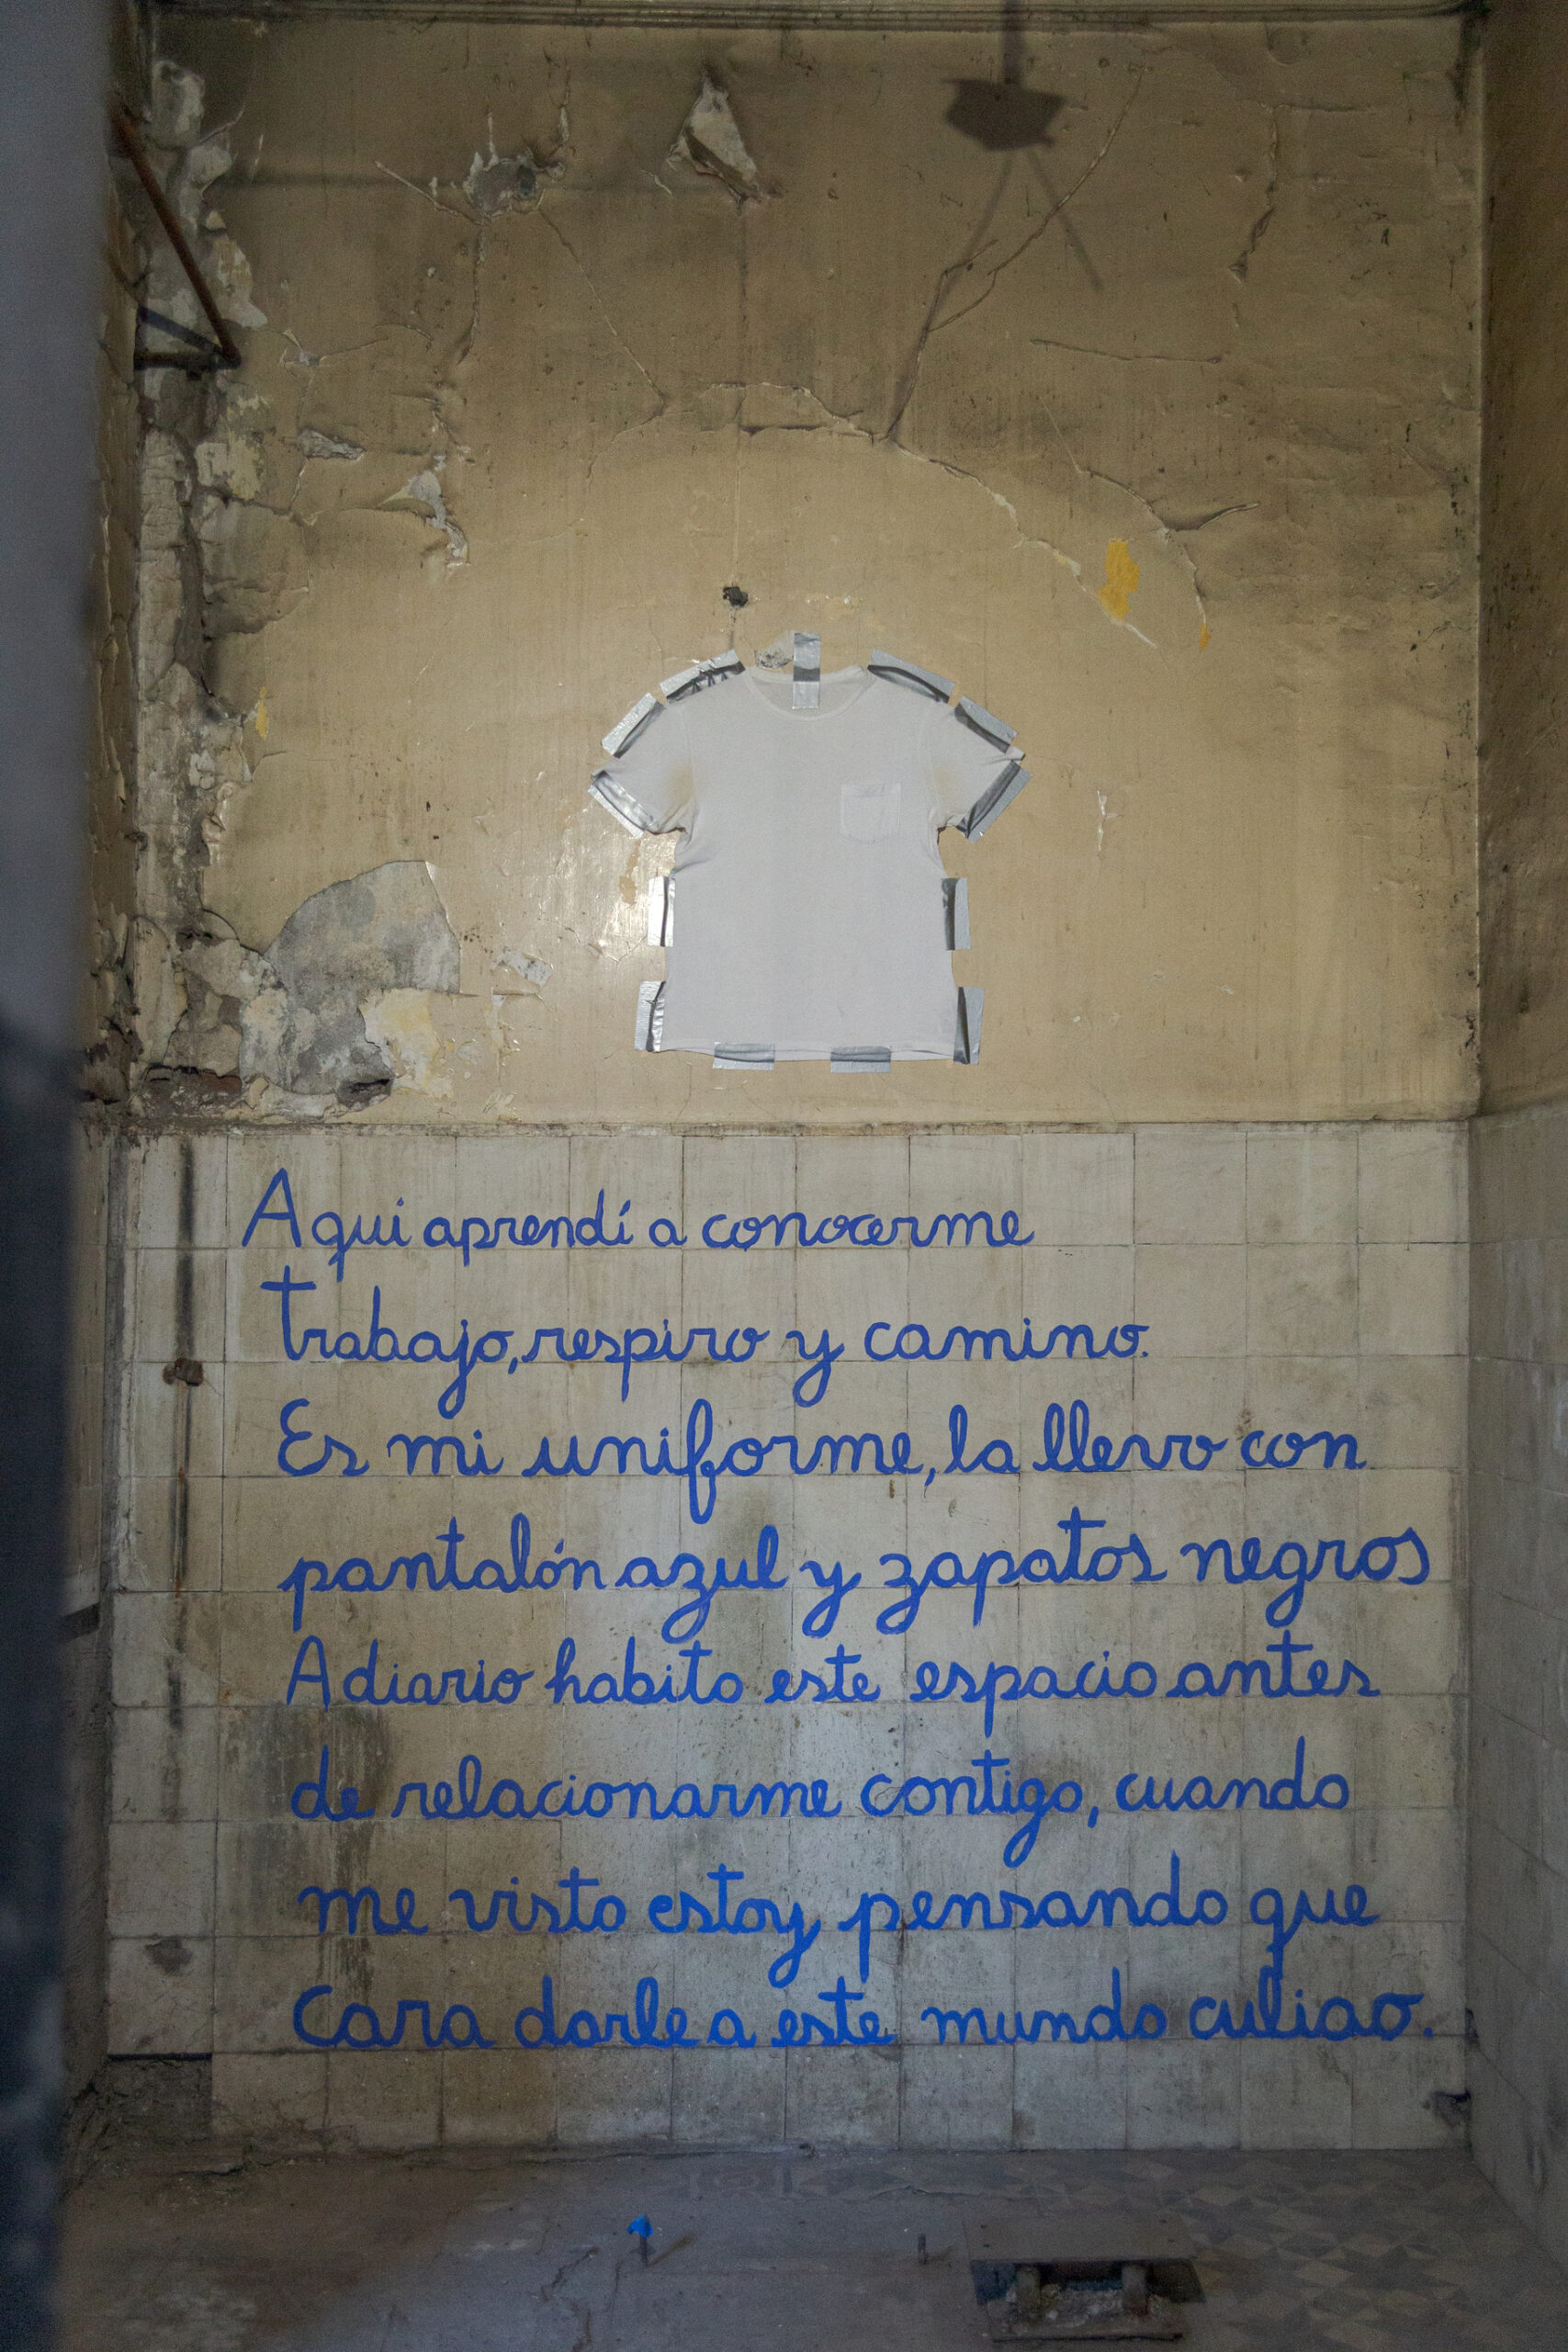 Aqui aprendí a conocerme
trabajo, respiro y camino.
Es mi uniforme, la llevo con
pantalón azul y zapatos negros
A diario habito este espacio antes
de relacionarme contigo, cuando
me visto estoy pensando que
Cara darle a este mundo culiao.